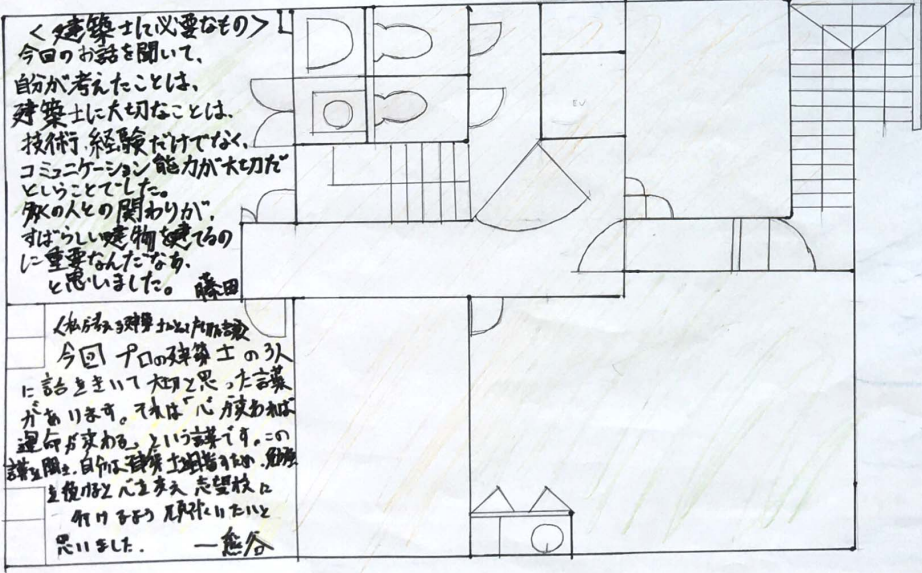 <建築士に必要なもの>
今回のお話を聞いて、
自分が考えたことは、
建築士に大切なことは、
技術、経験だけでなく、
コミュニケーション能力が大切だ
ということでした。
多くの人との関わりが、
すばらしい建物を建てるの
に重要なんだなあ、
と思いました。 藤田
今回 プロの建築士の3人
に話をきいて大切と思った言葉
があります。それは「心が変われば
運命が変わる」という言葉です。この
を聞き、自分は建築士 ため、勉強
を 心を変え 志望校に
行けるよう 頑張いたいと
思いました。 ー熊谷